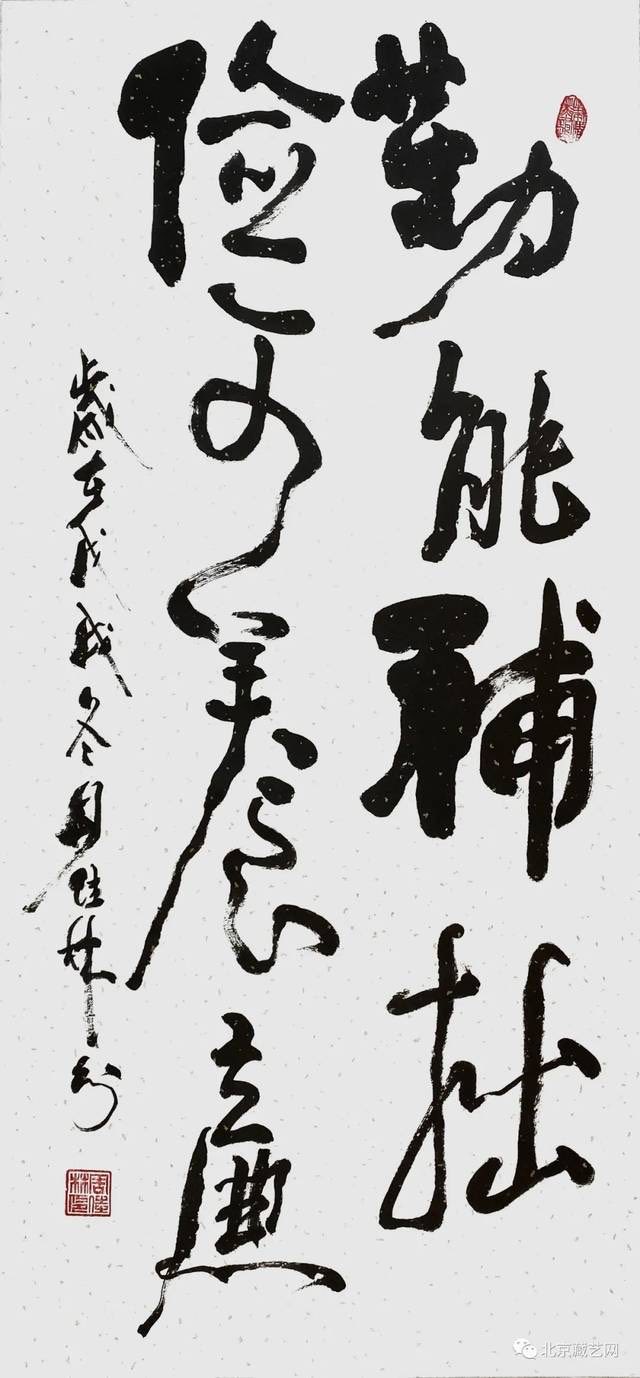 勤能補拙
儉可養廉
歲在戊戌冬周佳林
北京藏艺网